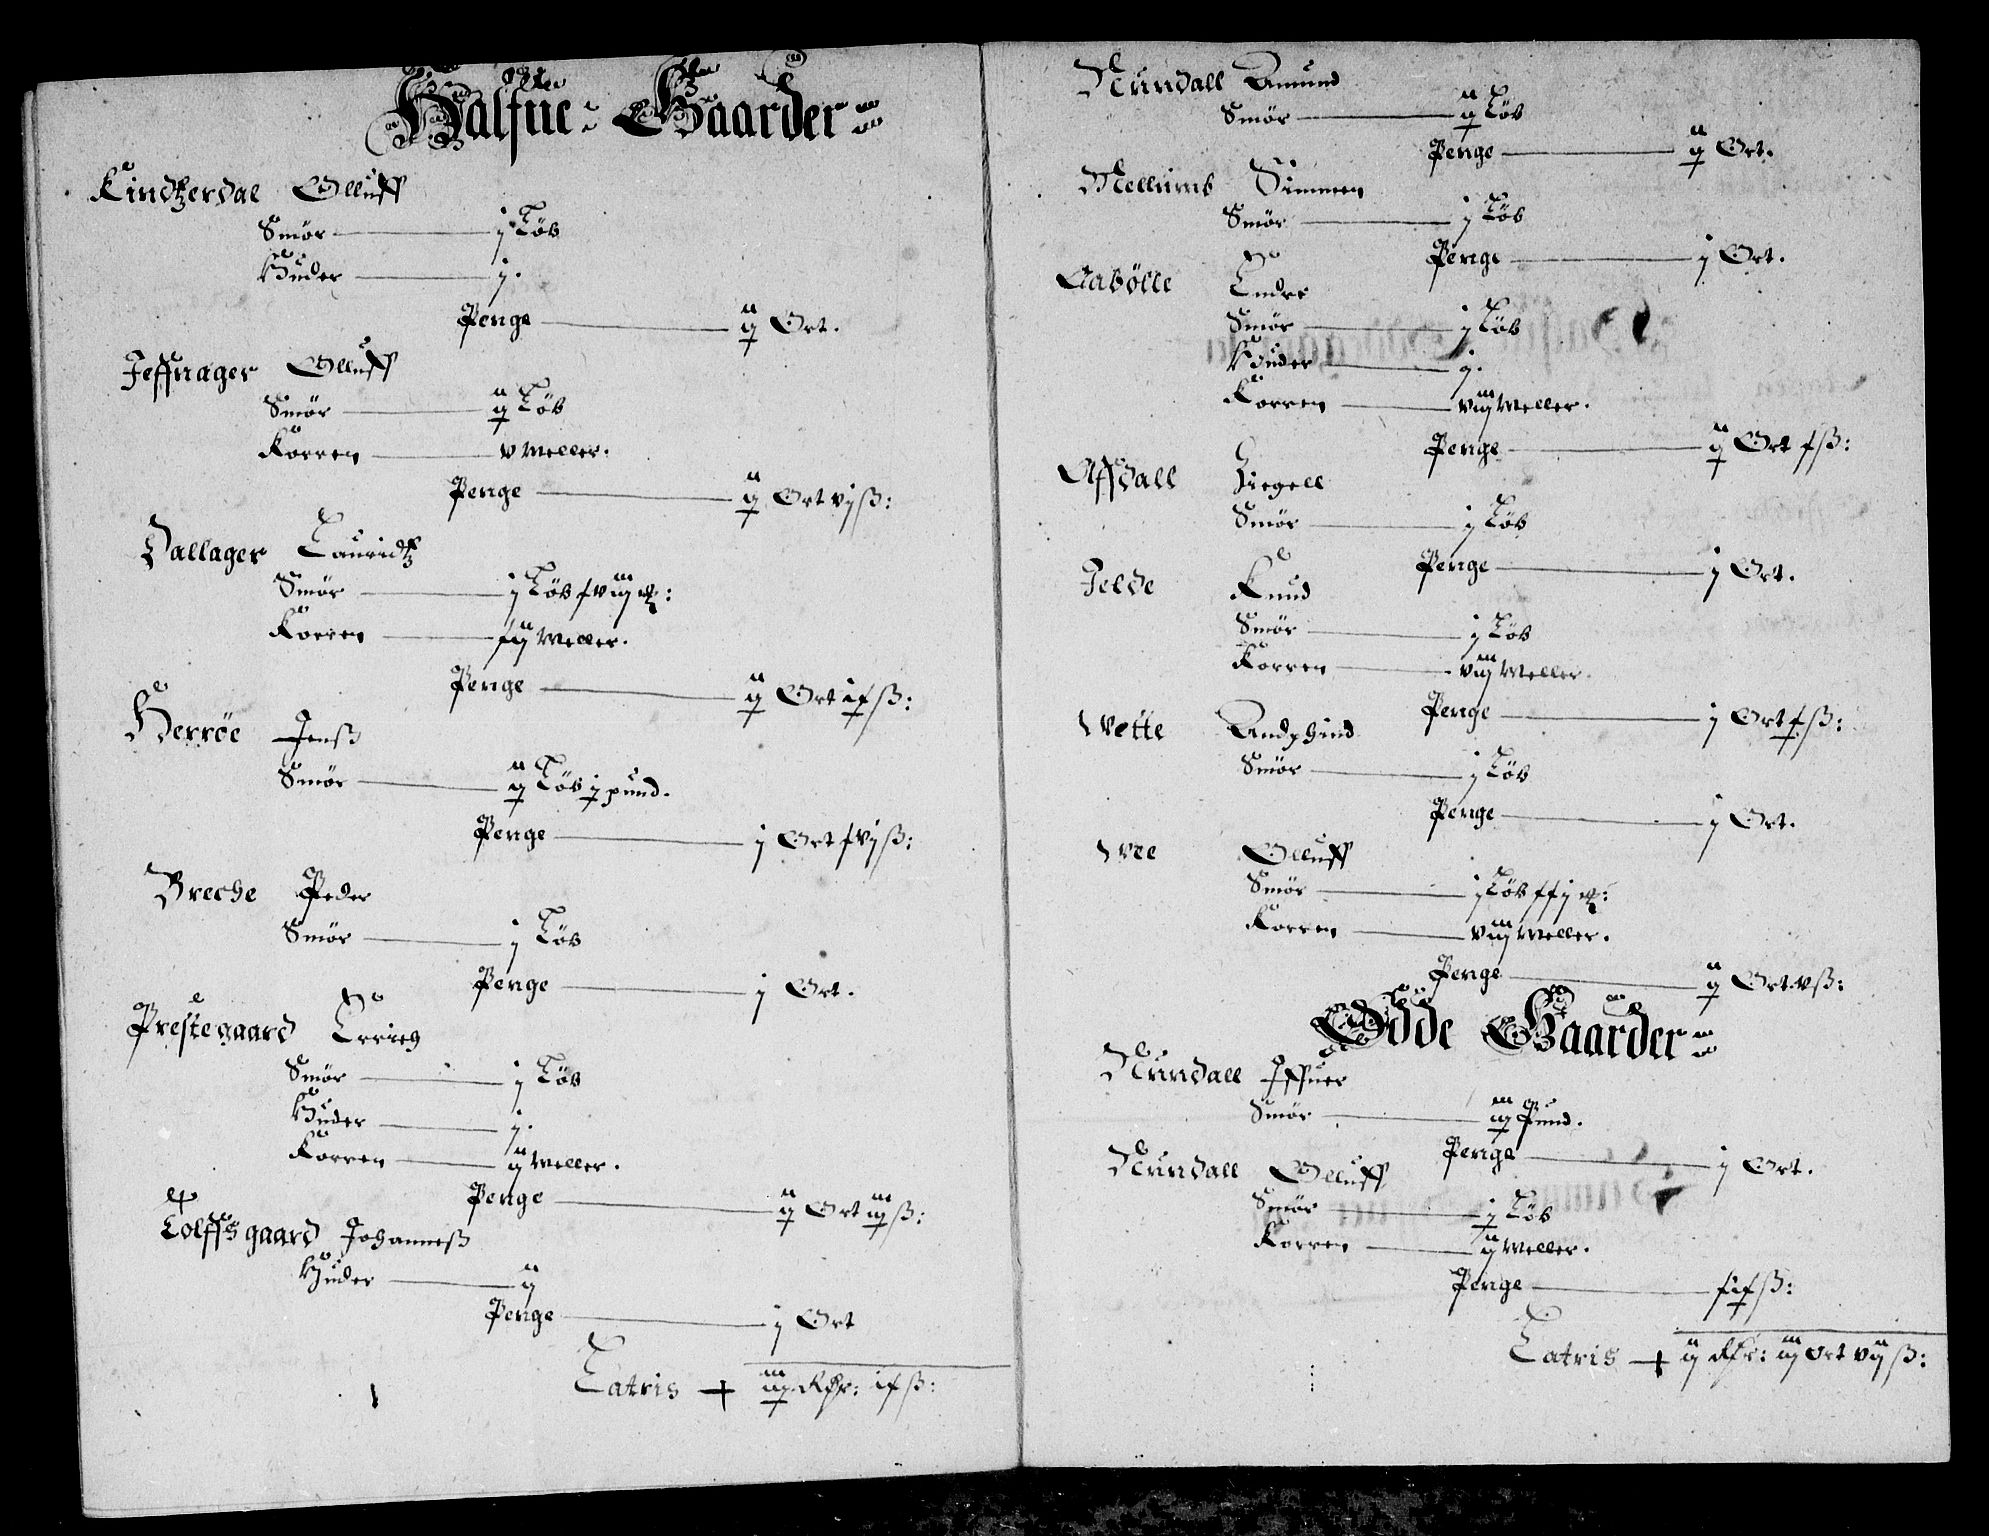 Halfue: Gaarder
Kindtzerdal Olluff
Smör — j Löb
Huder — j.
Penge — ij Ort.
Jeffnager Olluff
Smör — ij Löb
Korren — v meller.
Penge — ij Ort vjß:
Dallager Lauridtz
Smör — j Löb
Korren — meller.
Penge — ij Ort ß:
Herröe Jenß
Smör — ij Löb j pund.
Penge — j Ort ß:
Breche Peder
Smör — j Löb
Penge — j Ort.
Prestegaard Errich
Smör — j Löb
Huder — j.
Korren — ij meller.
Penge — ij Ort iijß:
Tolffsgaard Johanneß
Huder — ij
Penge — j Ort
Latris + iij Rdr: ß:
Rundall Amund
Smör — ij Löb
Penge — ij Ort.
Mellumb Simmen
Smör — j Löb
Penge — j Ort.
Aabölle Endre
Smör — j Löb
Huder — j.
Korren — viij meller.
Penge — ij Ort ß:
Affdall
Smör — j Löb
Penge — j Ort.
Jelde Knud
Smör — j Löb
Korren — viij meller.
Penge — j Ort ß:
Wette
Smör — j Löb
Penge — j Ort.
Wie Olluff
Smör — j Löb
Korren — viij meller.
Penge — ij Ort vß:
Öde Gaarder
Rundall Iffuer
Smör — iij Pund.
Penge — j Ort.
Rundall Olluff
Smör — j Löb
Korren — ij meller.
Penge — ß:
Latris + ij Rdr: iij ort vijß: